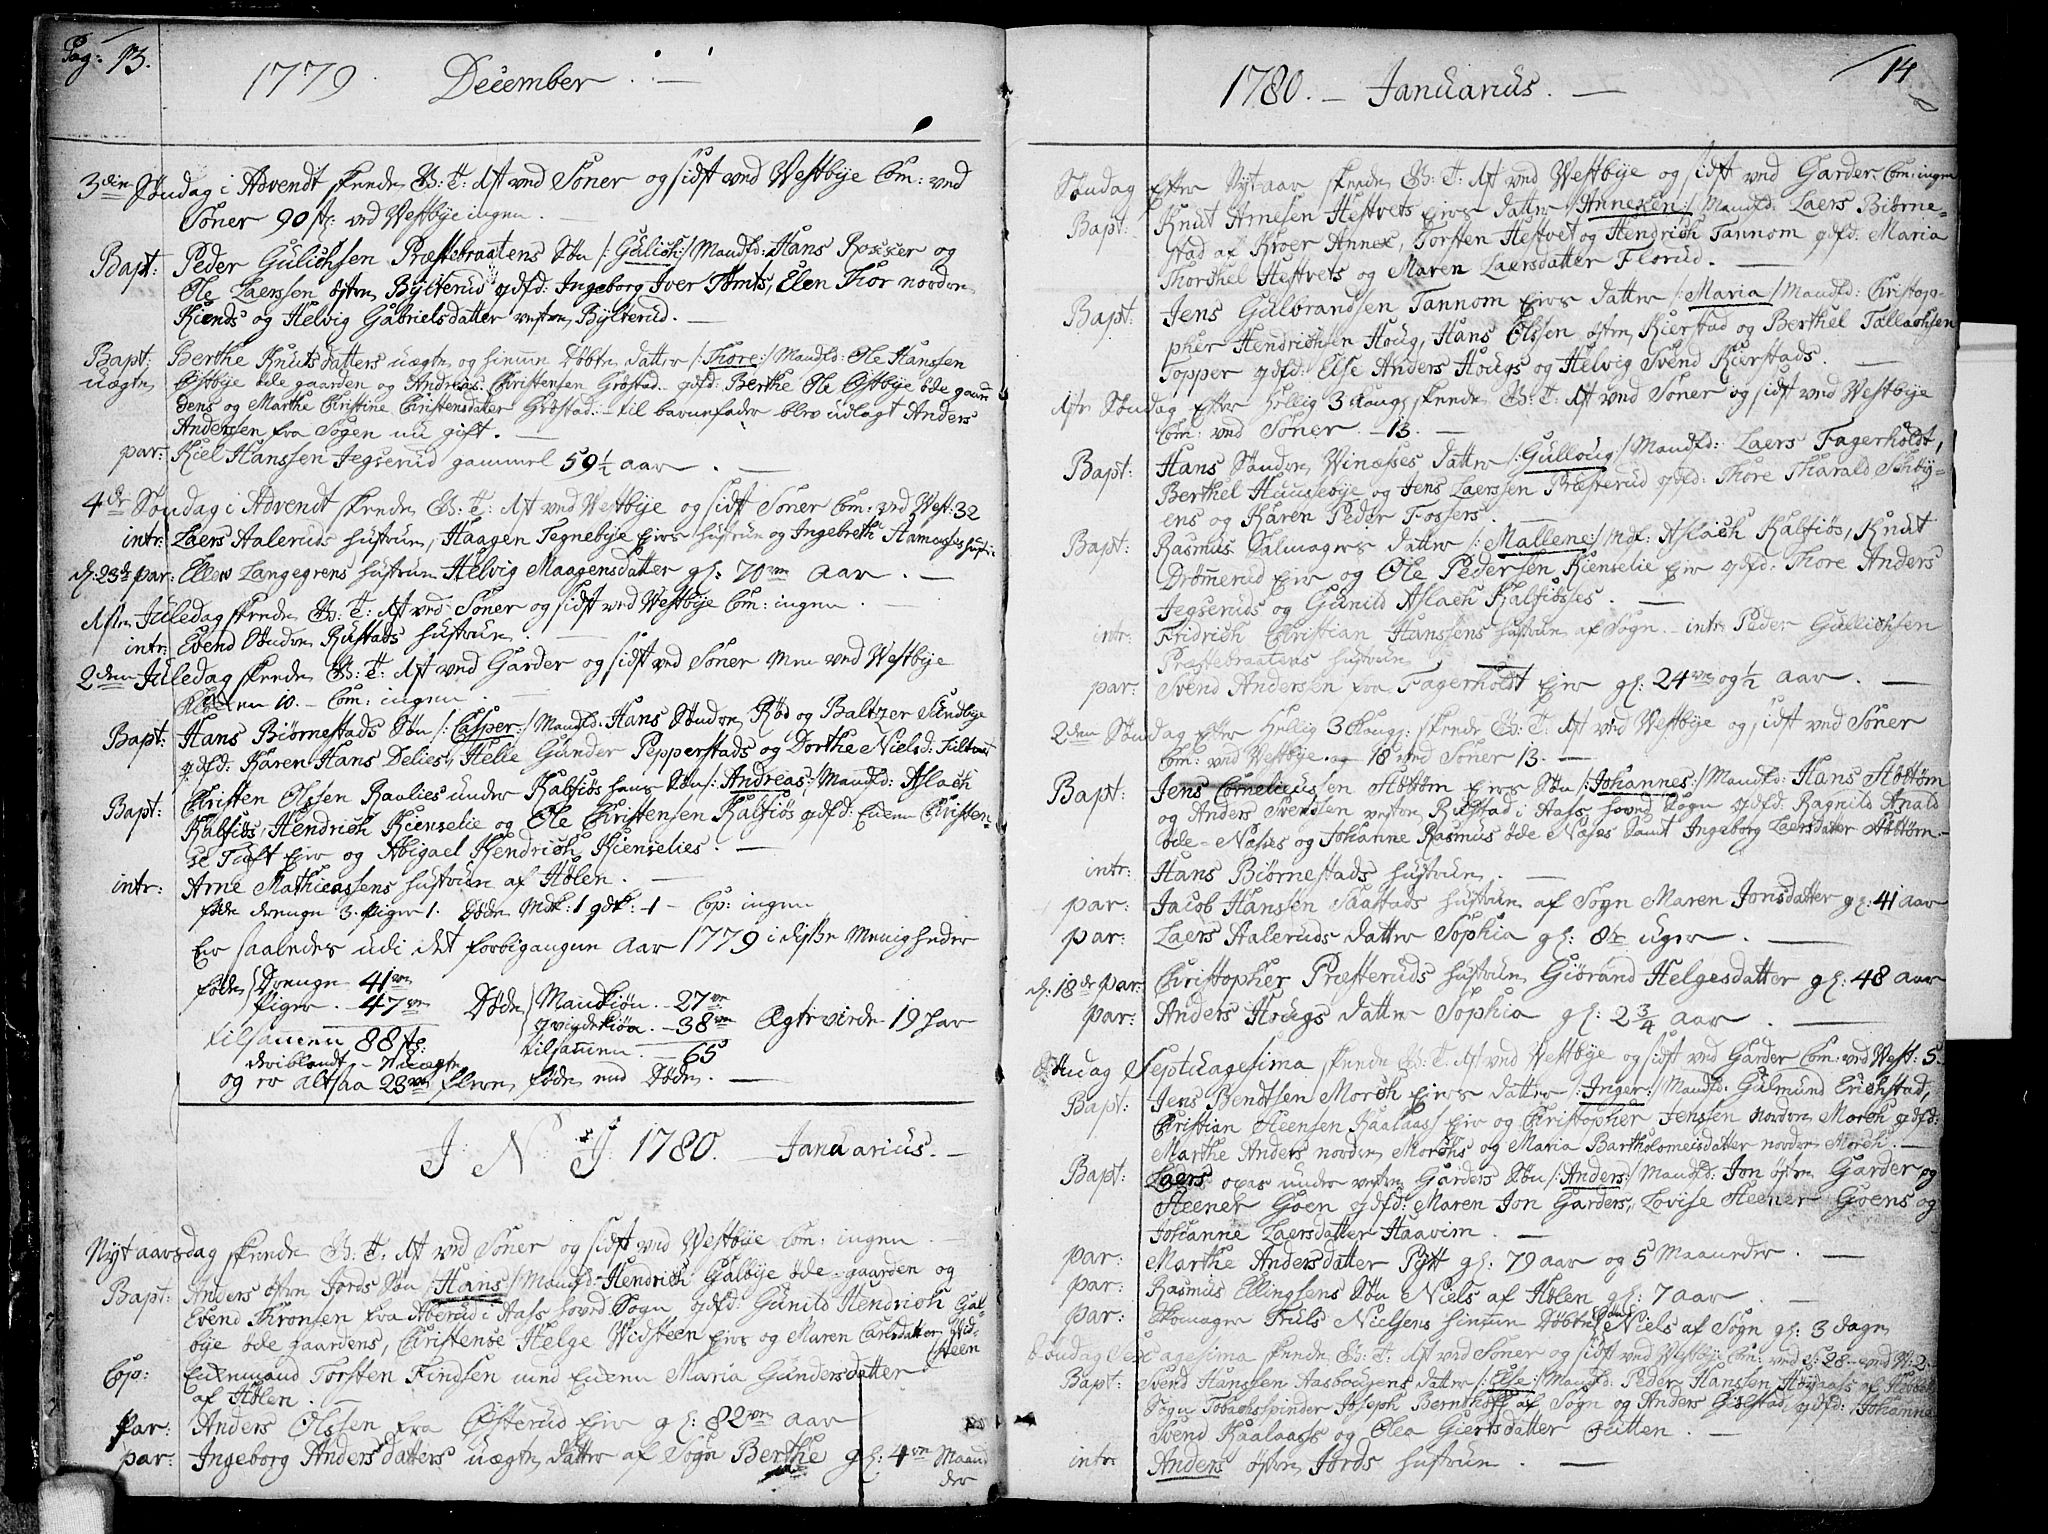 Pag: 13.
1779. December.
3die Søndag i Advendt skeede G: T: 1st ved Soner og sidst ved Westbye Com: ved
Soner 90 st: ved Westbye ingen.
Bapt: Peder Gulichsen Præstebraatens Søn /: Gulich :/ Mandfd: Hans Rosser og
Ole Laerssen østre Bylterud qdfd: Ingeborg Iver Tømts, Elen Thor nordre
Kiends og Helvig Gabrielsdatter vestre Bylterud.
Bapt: Berthe Knutsdatters uægte og hiemme Døbte datter /: Thore :/ Mandfd: Ole Hanssen
uægte Østbye øde gaarden og Andreas Christensen Grøstad. qdfd: Berthe Ole Østbye øde gaar-
dens og Marthe Christine Christensdatter Grøstad. til barnefader blev udlagt Anders
Andersen fra Sogen nu gift.
par: Kiel Hanssen Jegserud gammel 59 1/2 aar.
4de Søndag i Advendt skeede G: T: 1st ved Westbye og sidst Soner Com: ved West: 32
intr: Laers Aaleruds hustrue, Haagen Tegnebye Eiers hustrue og Ingebreth
d: 23de par: Ellev Langegrens hustrue Helvig Maagensdatter gl: 70ve Aar.
1ste Juledag skeede G: T: 1st ved Soner og sidst ved Westbye Com: ingen.
intr: Evend Søndre Rustads hustrue.
2den Juledag skeede G: T: 1st ved Garder og sidst ved Soner men ved Westbye
Klokken 10. Com: ingen.
Bapt: Hans Biørnestads Søn /: Casper :/ Mandfd: Hans Søndre Rød og Baltzer Sundbye
qdfd: Karen Hans Delies, Helle Gunder Pepperstads og Dorthe Nielsd:
Bapt: Christen Olssen Raalies under Kalsiøs hans Søn /: Andreas :/ Mandfd: Aslach
Kalsiøs, Hendrich Kienselie og Ole Christensen Kalsiøs qdfd: Enken Christen-
se Toft Eier og Abigael Hendrich Kienselies.
intr: Arne Mathieassens hustrue af Hølen.
føde drenge 3. Piger 1. Døde Mdk: 1 qdk: 1 Cop: ingen
Er saaledes udi det forbigangne Aar 1779 i disse Menigheder
føde Drenge 41ve
Piger 47ve Døde Mandkiøn 27ve
qvindekiøn 38ve Ægteviede 19 Par
tilsamen 88 st: tilsamen 65
deriblandt 7 uægte
og er altsaa 23ve flere føde end Døde.
J: N: J: 1780. Januarius.
Nyt aarsdag skeede G: T: 1st ved Soner og sidst ved Westbye Com: ingen
Bapt: Anders østre Jords Søn /: Hans :/ Mandfd: Hendrich Galbye øde gaarden og
Evend Thronsen fra Aberud i Aass hoved Sogn qdfd: Gunild Hendrich Gal-
bye øde gaardens, Christense Helge Widsteen Eiers og Maren Carlsdatter Wid-
steen
Cop: Enkemand Torsten Findsen med Enken Maria Gundersdatter
af Hølen.
Par: Anders Olssen fra Østerud Eier gl: 82ve aar
par: Ingeborg Andersdatters uægte datter af Sogn Berthe gl: 4ve Maane
der
14
1780. Januarius.
Søndag Efter Nytaar skeede G: T: 1st ved Westbye og sidst ved Garder Com: ingen
Bapt: Knut Arnesen Hestvets Eiers datter /: Annexen :/ Mandfd: Laers Biørne-
stad af Kroer Annex, Torsten Hestvet og Hendrich Tannom qdfd: Maria
Thorkel Hestvets og Maren Laersdatter Florud.
Bapt: Jens Gulbrandsen Tannom Eiers datter /: Maria / Mandfd: Christop-
pher Hendrichsen Houg, Hans Olssen østre Kierstad og Berthel Tallachsen
Topper qdfd: Else Anders Hougs og Helvig Svend Kierstads.
1ste Søndag Efter Hellig 3 Kong: skeede G: T: 1st ved Soner og sidst ved Westbye
Com: ved Soner 13.
Bapt: Hans Søndre Winæsses datter /: Gulloug :/ Mandfd: Laers Fagerholdt,
Berthel Huusebye og Jens Laerssen Præsterud qdfd: Thore Tharald Schby-
ens og Karen Peder Fossers.
Bapt: Rasmus Salmagers datter /: Mallene :/ Mdf: Aslach Kalsiøs, Knut
Drømmerud Eier og Ole Pedersen Kienselie Eier qdfd: Thore Anders
Jegseruds og Gunild Aslach Kalsiøsses.
intr: Fridrich Christian Hanssens hustrue af Sogn. intr: Peder Gullichsen
Præstebraatens hustrue
par: Svend Andersen fra Fagerholdt Eier gl: 24ve og 1/2 aar.
2den Søndag efter Hellig 3 Kong: skeede G: T: 1st ved Westbye og sidst ved Soner
Com: ved Westbye 18 ved Soner 13.
Bapt: Jens Corneliussen Støttøm Eiers Søn /: Johannes :/ Mandfd: Hans Støttøm
og Anders Svendsen vestre Rustad i Aass hoved Sogn qdfd: Ragnild Anald
øde Næsses og Johanne Rasmus øde Næses samt Ingeborg Laersdatter Støttøm.
intr: Hans Biørnestads hustrue.
par: Jacob Hanssen Saastads hustrue af Sogn Maren Jonsdatter gl: 41 aar
par: Laers Aaleruds datter Sophia gl: 8te uger.
d: 18de par: Christopher Præsteruds hustrue Giørand Helgesdatter gl: 48 aar
par: Anders Hougs datter Sophia gl: 2 3/4 aar.
Søndag Septuagesima skeede G: T: 1st ved Westbye og sidst ved Garder Com: ved West: 5.
Bapt: Jens Bendtsen Morch Eiers datter /: Inger :/ Mandfd: Gulmund Erichstad,
Christian Steensen Raalaass Eier og Christopher Jenssen nordre Morch qdfd:
Marthe Anders nordre Morchs og Maria Bartholomeisdatter nordre Morch.
Bapt: Laers opas under vestre Garders Søn /: Anders :/ Mandfd: Jon østre Garder og
Steener Goen qdfd: Maren Jon Garders, Lovise Steener Goens og
Johanne Laersdatter Haavim.
par: Marthe Andersdatter Pytt gl: 79 aar og 5 Maaneder.
par: Rasmus Ellingsens Søn Niels af Hølen gl: 7 aar.
par: Skomager Truls Nielsens hiemme Døbte Søn Niels af Sogn gl: 3 dage
Søndag Sexagesima skeede G: T: 1st ved Soner og sidst ved Westbye Com: ved S: 28 ved W: 2.
Bapt: Svend Hanssen Aasbougens datter /: Else :/ Mandfd: Peder Hanssen Høyaass af
Sogn Tobachsspinder Joseph Bernthoff af Sogn og Anders Gislestad, qdfd: Johanne
Svend Raalaass og Olea Giertsdatter Qvitten.
intr: Anders østre Jords hustrue.